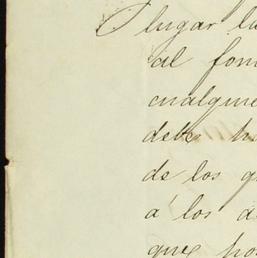 lugar la
al fon
cualquie
debe h
de los q
a los d
que pos